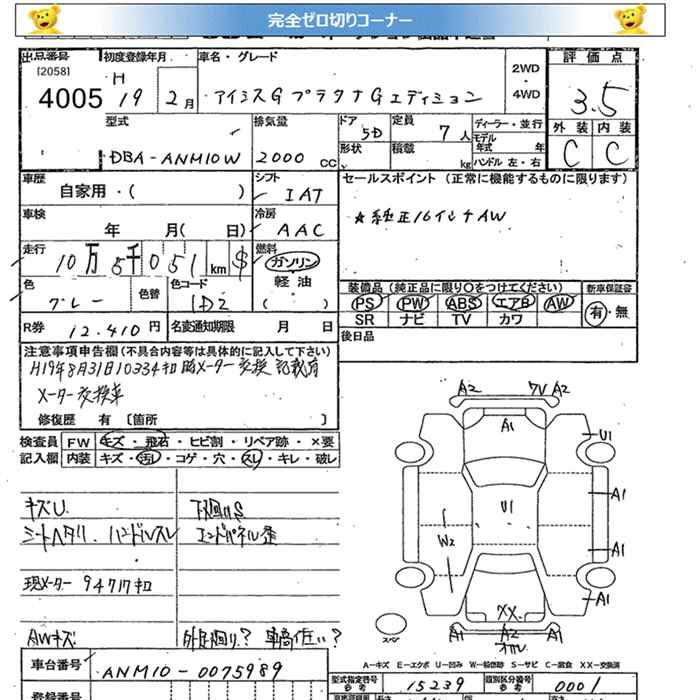 完全ゼロ切りコーナー
出品番号 初度登録年月 車名・グレード 2WD・4WD 評価点
[2058]
4005 H19 2月 アイシスG プラタナGエディション 3.5
外装 内装
C C
型式 排気量 ドア 5D 定員 7人 ディーラー・並行
DBA-ANM10W 2000cc 形状 積載 kg モデル年式 年
ハンドル 左・右
車歴 シフト セールスポイント(正常に機能するものに限ります)
自家用・( ) IAT
車検 冷房 ★純正16インチAW
年 月( 日) AAC
走行 燃料
10万5千051km $ ガソリン
軽油
( )
色 色替 色コード 装備品(純正品に限り○をつけてください) 新車保証書
グレー 1D2 PS PW ABS エアB AW 有・無
SR ナビ TV カワ
R券 12,410円 名変通知期限 月 日 後日品
注意事項申告欄(不具合内容等は具体的に記入して下さい)
H19年8月31日10334キロ時メーター交換 記載有
メーター交換車
修復歴 有〔箇所 〕
検査員 FW キズ・飛石・ヒビ割・リペア跡・×要
記入欄 内装 キズ・汚レ・コゲ・穴・スレ・キレ・破レ
キズU 下廻りS
シートヘタリ.ハンドルスレ エンドパネル歪
現メーター 94717キロ
AWキズ 外品廻り? 車高低い?
A2 フワA2
A1
U1
A1
U1
W2
A1
A1
XX
スペア A1 A2 A1
オカル
A-キズ E-エクボ U-凹み W-板修跡 S-サビ C-腐食 XX-交換済
車台番号 型式指定番号 類別区分番号
ANM10-0075989 参考 15239 参考 0001
登録番号